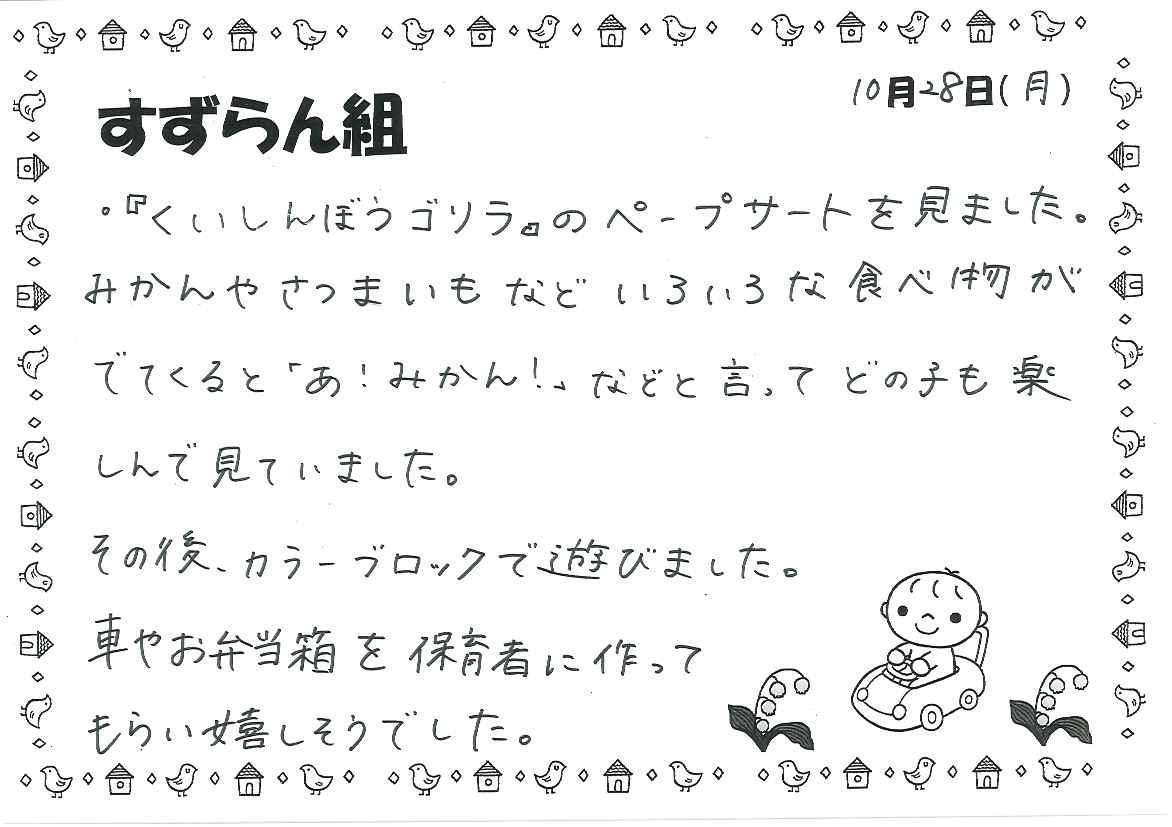 10月28日(月)
すずらん組
・『くいしんぼうゴリラ』のペープサートを見ました。
みかんやさつまいもなどいろいろな食べ物が
でてくると「あ！みかん！」などと言ってどの子も楽
しんで見ていました。
その後、カラーブロックで遊びました。
車やお弁当箱を保育者に作って
もらい嬉しそうでした。